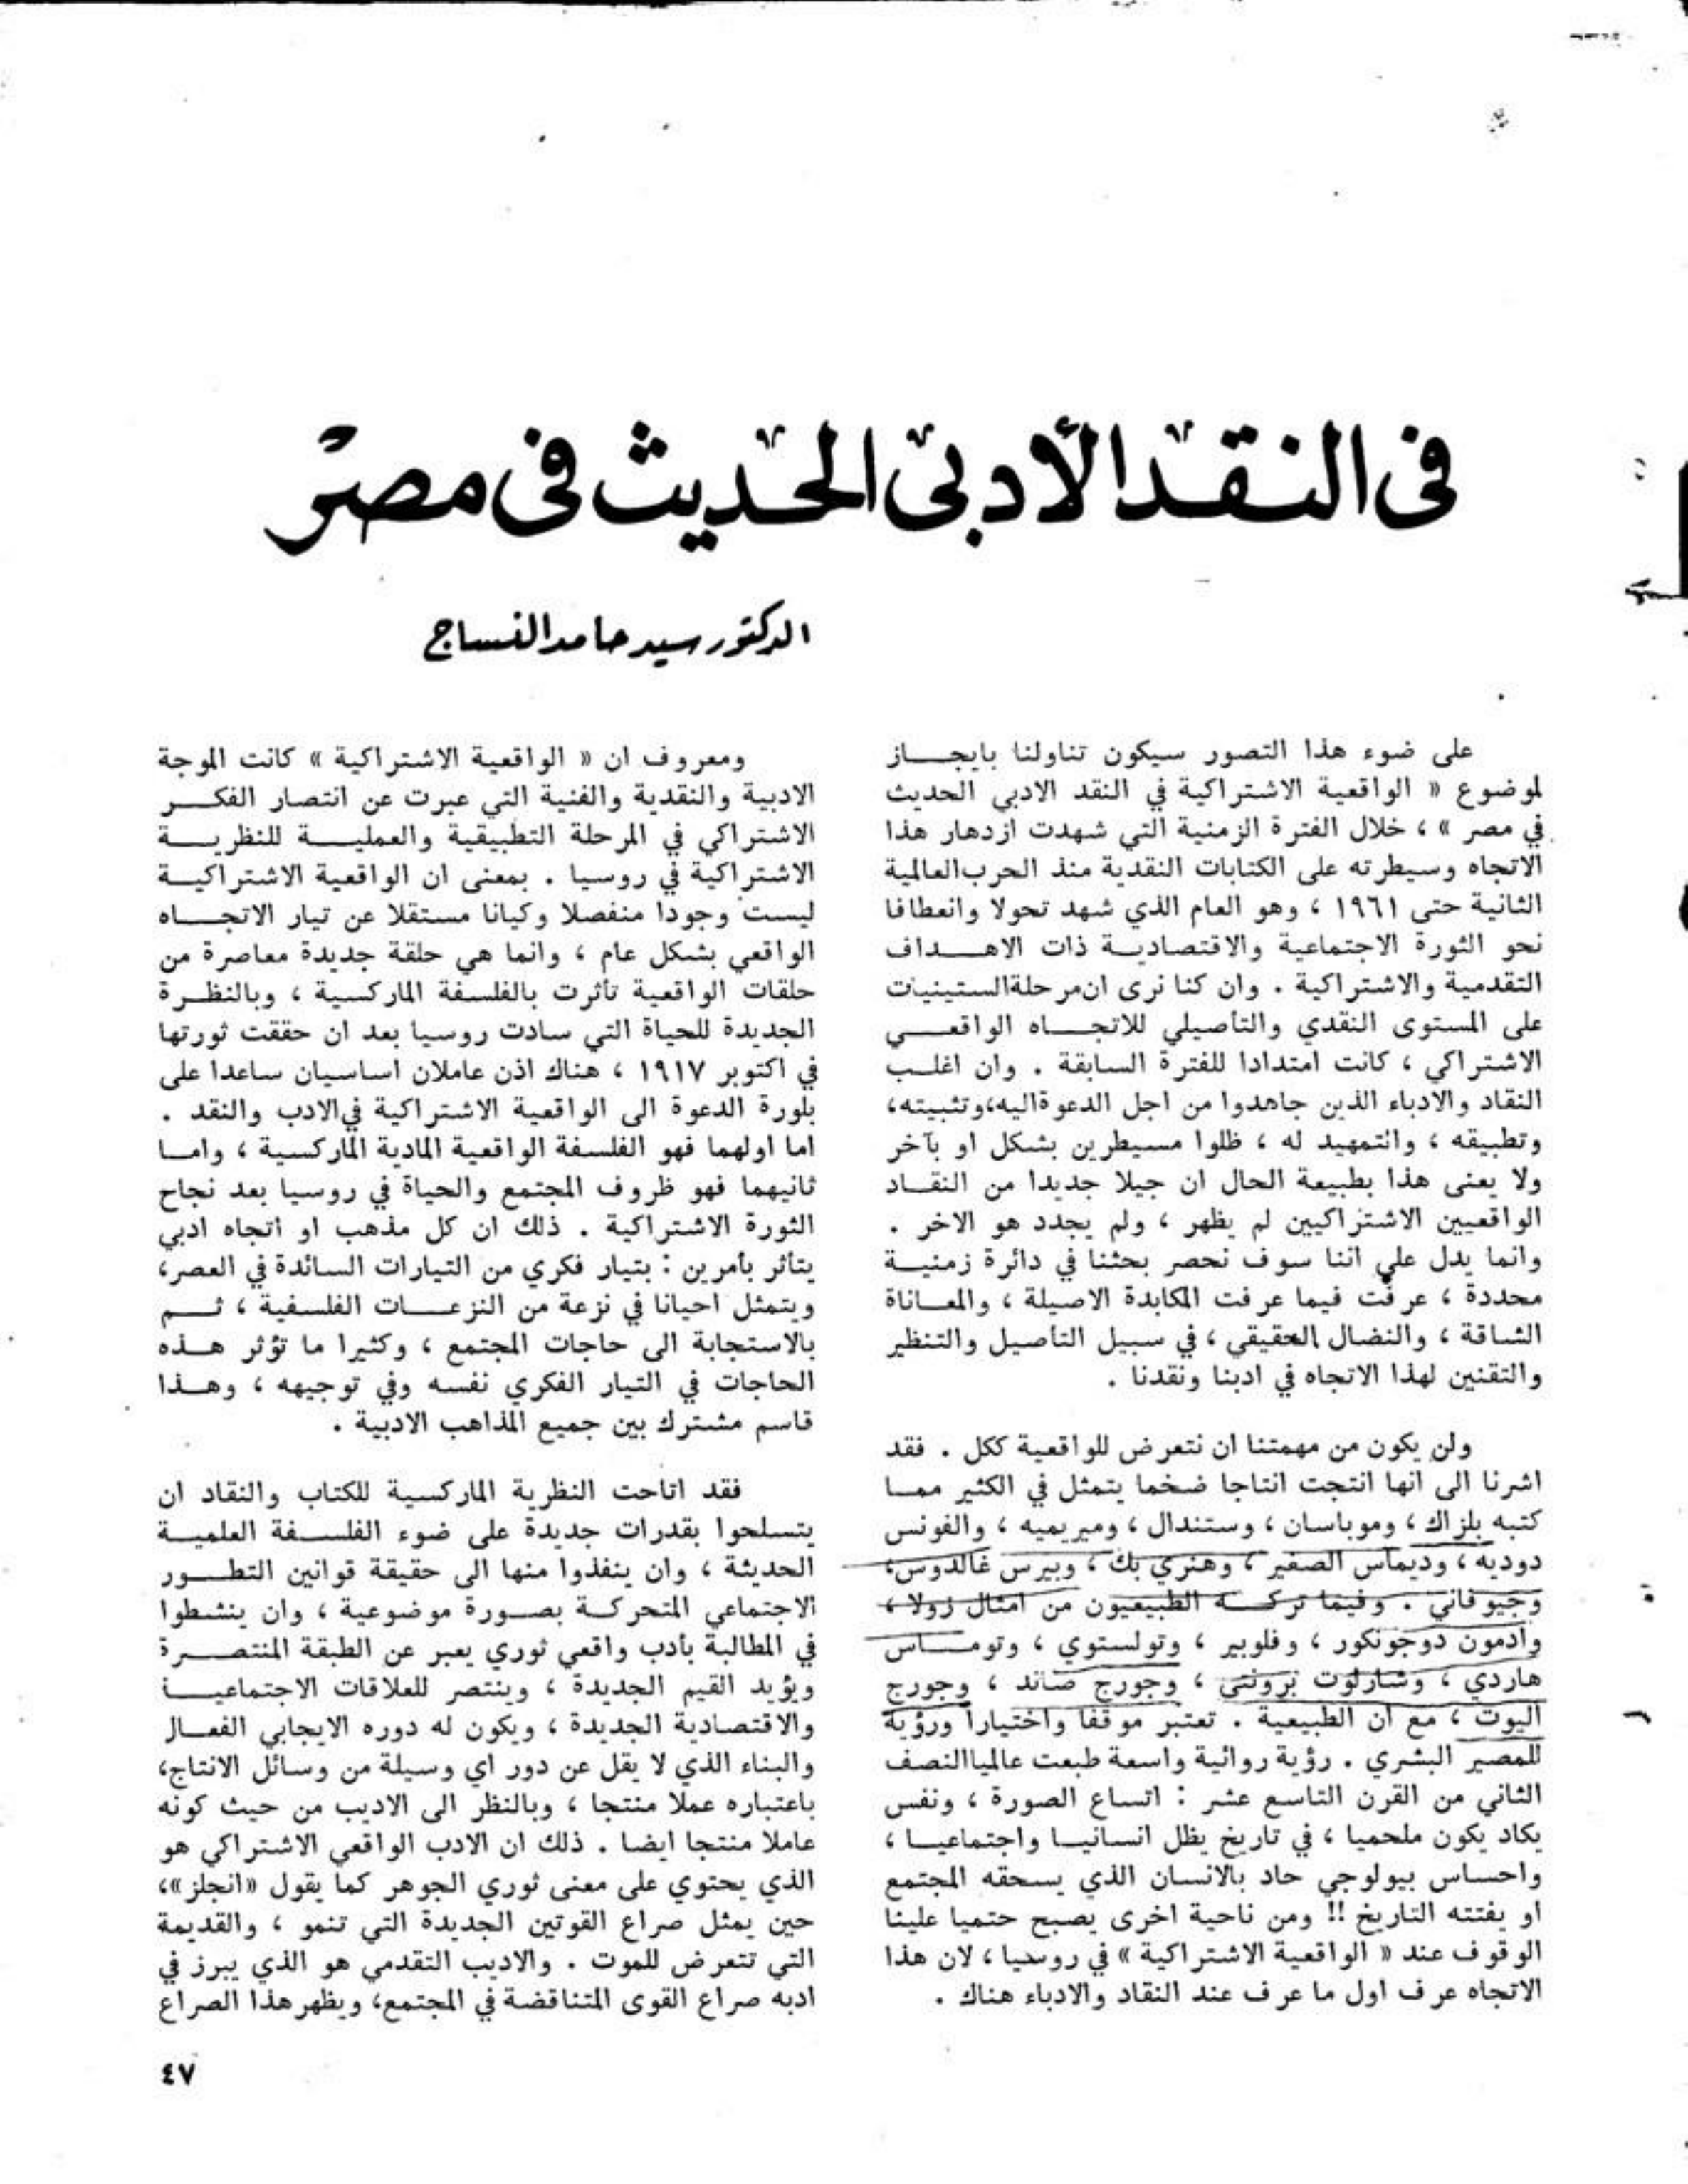 في النقد الأدبي الحديث في مصر
الدكتور سيد حامد النساج
على ضوء هذا التصور سيكون تناولنا بايجاز
لموضوع « الواقعية الاشتراكية في النقد الادبي الحديث
في مصر » ، خلال الفترة الزمنية التي شهدت ازدهار هذا
الاتجاه وسيطرته على الكتابات النقدية منذ الحرب العالمية
الثانية حتى ١٩٦١ ، وهو العام الذي شهد تحولا وانعطافا
نحو الثورة الاجتماعية والاقتصادية ذات الاهداف
التقدمية والاشتراكية . وان كنا نرى ان مرحلة الستينيات
على المستوى النقدي والتأصيلي للاتجاه الواقعي
الاشتراكي ، كانت امتدادا للفترة السابقة . وان اغلب
النقاد والادباء الذين جاهدوا من اجل الدعوة اليه، وتثبيته،
وتطبيقه ، والتمهيد له ، ظلوا مسيطرين بشكل او بآخر
ولا يعنى هذا بطبيعة الحال ان جيلا جديدا من النقاد
الواقعيين الاشتراكيين لم يظهر ، ولم يجدد هو الاخر .
وانما يدل على اننا سوف نحصر بحثنا في دائرة زمنية
محددة ، عرفت فيما عرفت المكابدة الاصيلة ، والمعاناة
الشاقة ، والنضال الحقيقي ، في سبيل التأصيل والتنظير
والتقنين لهذا الاتجاه في ادبنا ونقدنا .
ولن يكون من مهمتنا ان نتعرض للواقعية ككل . فقد
اشرنا الى انها انتجت انتاجا ضخما يتمثل في الكثير مما
كتبه بلزاك ، وموباسان ، وستندال ، وميريميه ، والفونس
دوديه ، وديماس الصغير ، وهنري بك ، وبيرس غالدوس،
وجيوفاني . وفيما تركه الطبيعيون من امثال زولا ،
وادمون دوجونكور ، وفلوبير ، وتولستوي ، وتوماس
هاردي ، وشارلوت برونتي ، وجورج صاند ، وجورج
اليوت ، مع ان الطبيعية . تعتبر موقفا واختيارا ورؤية
للمصير البشري . رؤية روائية واسعة طبعت عالميا النصف
الثاني من القرن التاسع عشر : اتساع الصورة ، ونفس
يكاد يكون ملحميا ، في تاريخ يظل انسانيا واجتماعيا ،
واحساس بيولوجي حاد بالانسان الذي يسحقه المجتمع
او يفتته التاريخ !! ومن ناحية اخرى يصبح حتميا علينا
الوقوف عند « الواقعية الاشتراكية » في روسيا ، لان هذا
الاتجاه عرف اول ما عرف عند النقاد والادباء هناك .
ومعروف ان « الواقعية الاشتراكية » كانت الموجة
الادبية والنقدية والفنية التي عبرت عن انتصار الفكر
الاشتراكي في المرحلة التطبيقية والعملية للنظرية
الاشتراكية في روسيا . بمعنى ان الواقعية الاشتراكية
ليست وجودا منفصلا وكيانا مستقلا عن تيار الاتجاه
الواقعي بشكل عام ، وانما هي حلقة جديدة معاصرة من
حلقات الواقعية تأثرت بالفلسفة الماركسية ، وبالنظرة
الجديدة للحياة التي سادت روسيا بعد ان حققت ثورتها
في اكتوبر ١٩١٧ ، هناك اذن عاملان اساسيان ساعدا على
بلورة الدعوة الى الواقعية الاشتراكية في الادب والنقد .
اما اولهما فهو الفلسفة الواقعية المادية الماركسية ، واما
ثانيهما فهو ظروف المجتمع والحياة في روسيا بعد نجاح
الثورة الاشتراكية . ذلك ان كل مذهب او اتجاه ادبي
يتأثر بأمرين : بتيار فكري من التيارات السائدة في العصر،
ويتمثل احيانا في نزعة من النزعات الفلسفية ، ثم
بالاستجابة الى حاجات المجتمع ، وكثيرا ما تؤثر هذه
الحاجات في التيار الفكري نفسه وفي توجيهه ، وهذا
قاسم مشترك بين جميع المذاهب الادبية .
فقد اتاحت النظرية الماركسية للكتاب والنقاد ان
يتسلحوا بقدرات جديدة على ضوء الفلسفة العلمية
الحديثة ، وان ينفذوا منها الى حقيقة قوانين التطور
الاجتماعي المتحركة بصورة موضوعية ، وان ينشطوا
في المطالبة بأدب واقعي ثوري يعبر عن الطبقة المنتصرة
ويؤيد القيم الجديدة ، وينتصر للعلاقات الاجتماعية
والاقتصادية الجديدة ، ويكون له دوره الايجابي الفعال
والبناء الذي لا يقل عن دور اي وسيلة من وسائل الانتاج،
باعتباره عملا منتجا ، وبالنظر الى الاديب من حيث كونه
عاملا منتجا ايضا . ذلك ان الادب الواقعي الاشتراكي هو
الذي يحتوي على معنى ثوري الجوهر كما يقول «انجلز»،
حين يمثل صراع القوتين الجديدة التي تنمو ، والقديمة
التي تتعرض للموت . والاديب التقدمي هو الذي يبرز في
ادبه صراع القوى المتناقضة في المجتمع، ويظهر هذا الصراع
٤٧